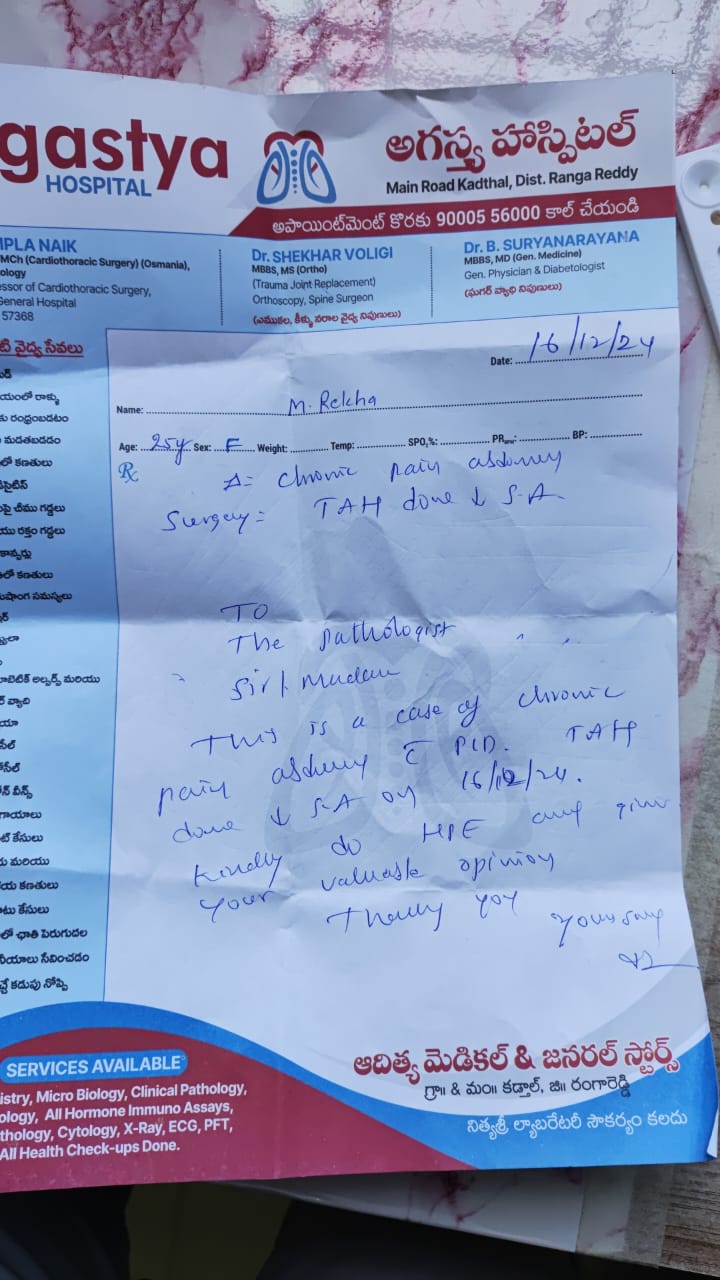 gastya
HOSPITAL
అగస్త్య హాస్పిటల్
Main Road Kadthal, Dist. Ranga Reddy
అపాయింట్‌మెంట్ కొరకు 90005 56000 కాల్ చేయండి
IPLA NAIK
MCh (Cardiothoracic Surgery) (Osmania),
ology
essor of Cardiothoracic Surgery,
General Hospital
57368
Dr. SHEKHAR VOLIGI
MBBS, MS (Ortho)
(Trauma Joint Replacement)
Orthoscopy, Spine Surgeon
(ఎముకల, కీళ్ళు నరాల వైద్య నిపుణులు)
Dr. B. SURYANARAYANA
MBBS, MD (Gen. Medicine)
Gen. Physician & Diabetologist
(షుగర్ వ్యాధి నిపుణులు)
టి వైద్య సేవలు
యంలో రాళ్ళు
కు రంధ్రంపడటం
మడతబడడం
లో కణతులు
పై చీము గడ్డలు
యు రక్తం గడ్డలు
లో కణతులు
షాంగ సమస్యలు
బెటిక్ అల్సర్స్ మరియు
ర్ వ్యాధి
సీల్
న్ వీన్స్
గాయాలు
ట్ కేసులు
మరియు
య కణతులు
టు కేసులు
లో ఛాతి పెరుగుదల
నీయాలు సేవించడం
చ్చే కడుపు నోప్పి
Date: 16/12/24
Name: M. Rekha
Age: 25y Sex: F Weight: Temp: SPO₂%: PR BP:
Rx
Δ= chronic pain abdomen
Surgery= TAH done ↓ S.A
TO
The pathologist
Sir/ Madam
This is a case of chronic
pain abdomen c̄ PID. TAH
done ↓ S.A on 16/12/24.
Kindly do HPE and give
your valuable opinion
Thank you
SERVICES AVAILABLE
istry, Micro Biology, Clinical Pathology,
ology, All Hormone Immuno Assays,
thology, Cytology, X-Ray, ECG, PFT,
All Health Check-ups Done.
ఆదిత్య మెడికల్ & జనరల్ స్టోర్స్
గ్రా॥ & మం॥ కడ్తాల్, జి॥ రంగారెడ్డి
నిత్యశ్రీ ల్యాబరేటరీ సౌకర్యం కలదు